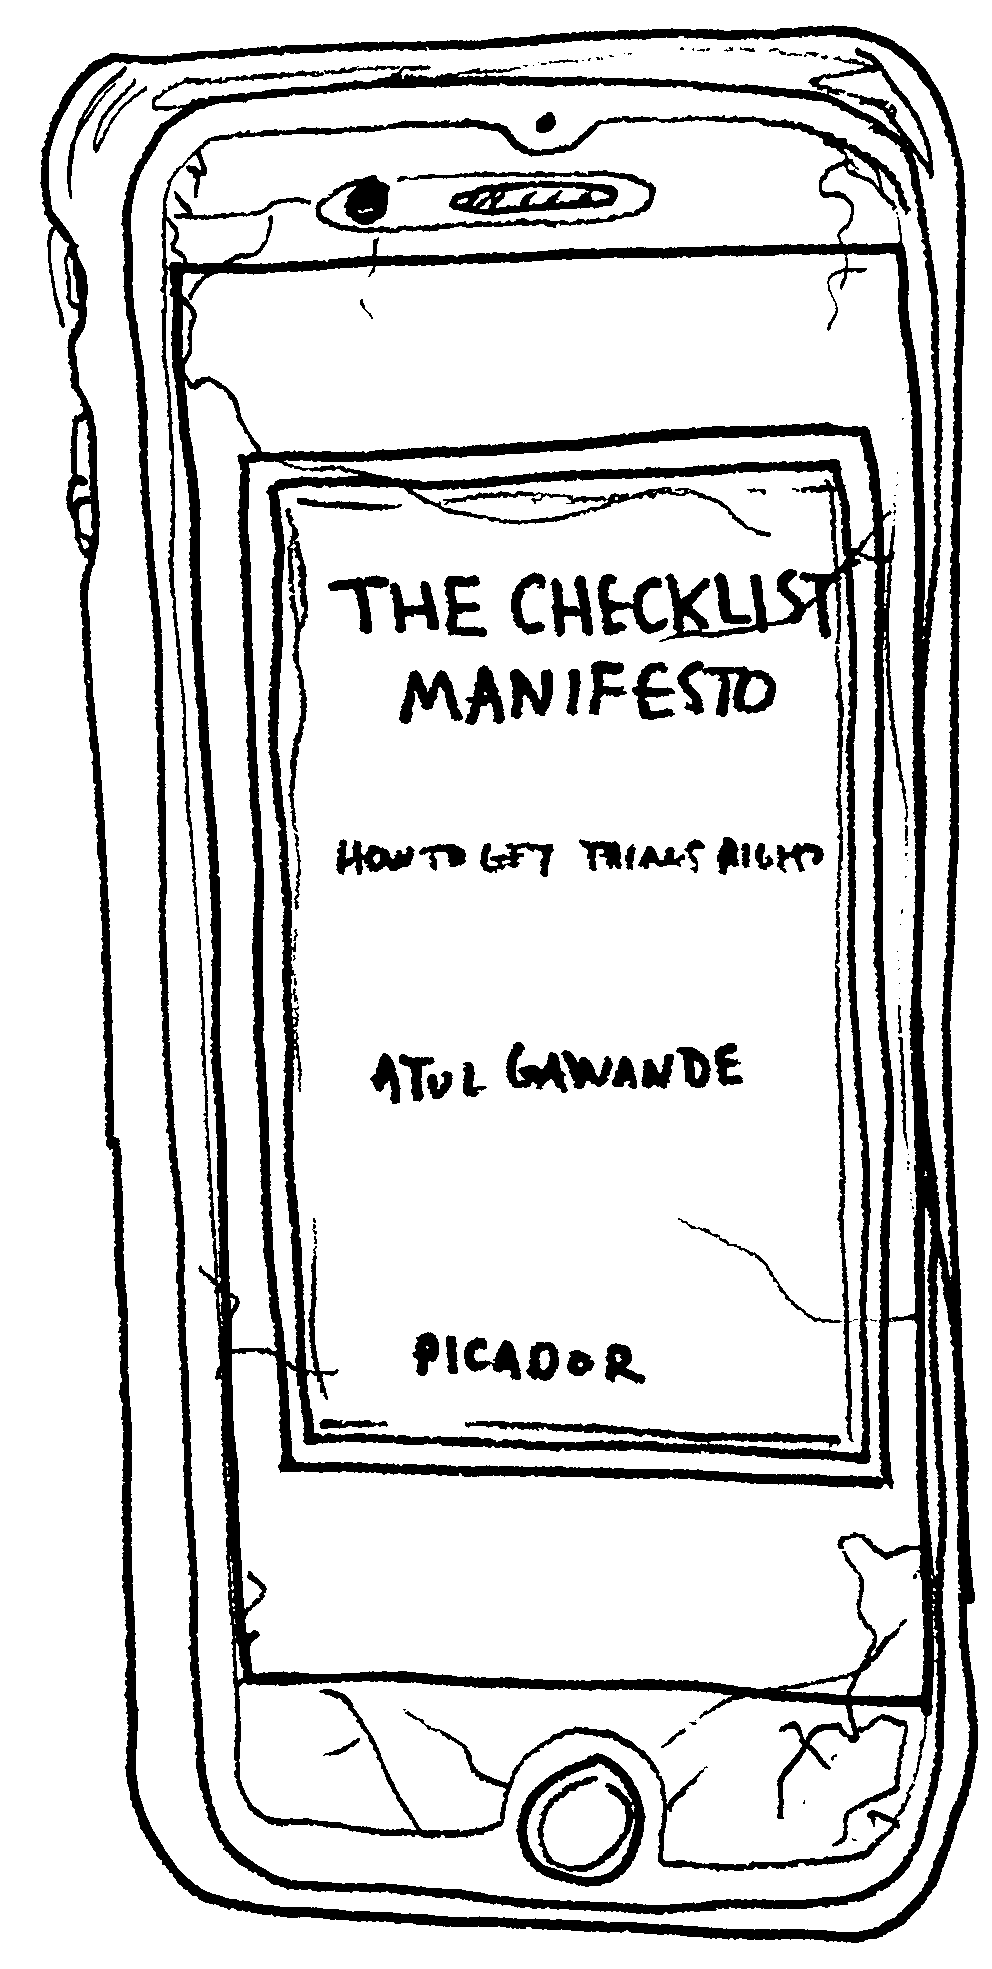 THE CHECKLIST
MANIFESTO
HOW TO GET THINGS RIGHT
ATUL GAWANDE
PICADOR